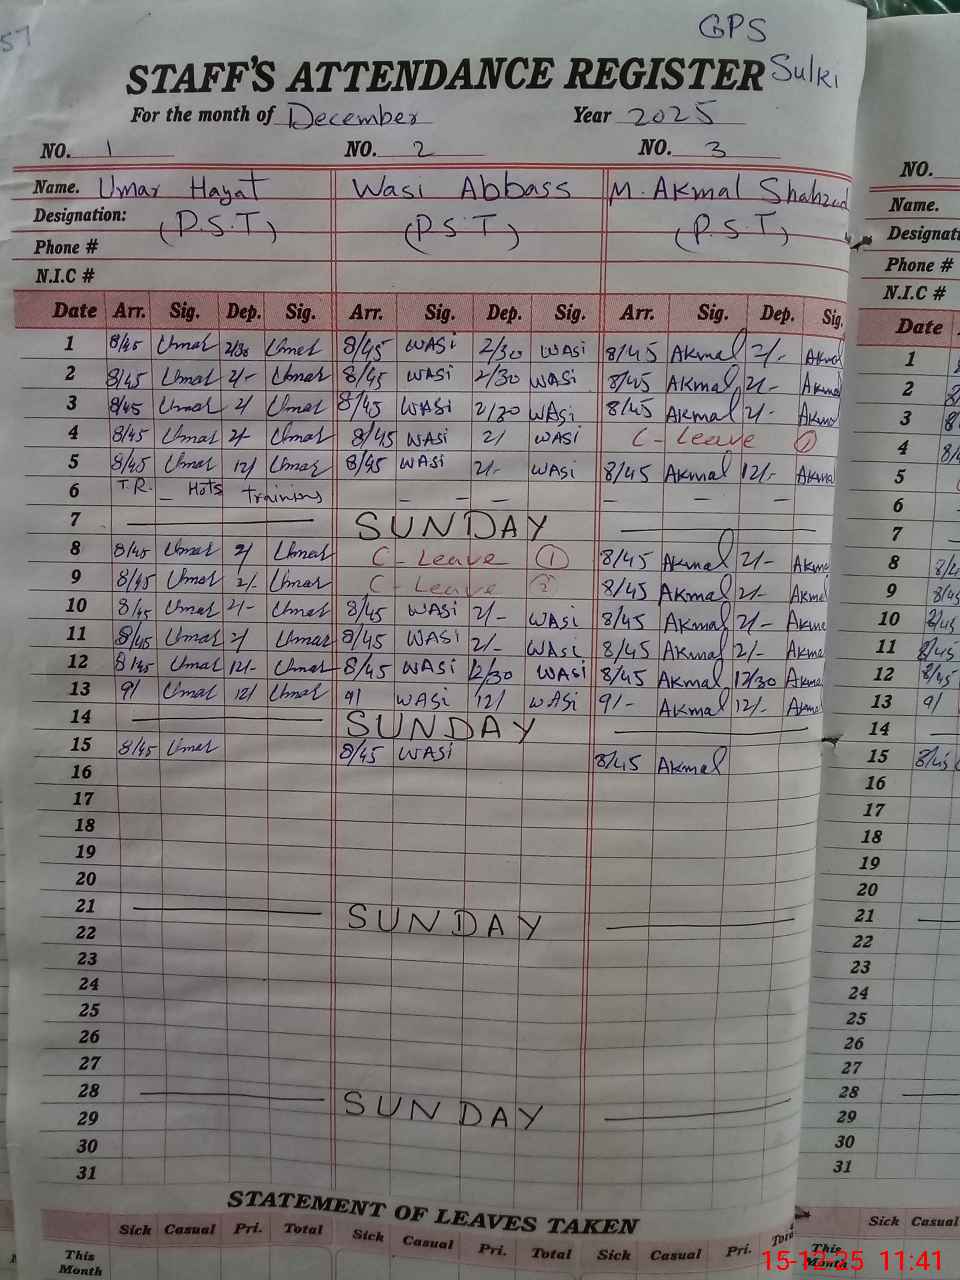 57
GPS
STAFF'S ATTENDANCE REGISTER Sulki
For the month of December Year 2025
NO. 1 NO. 2 NO. 3
Name. Umar Hayat Wasi Abbass M. Akmal Shahzad
Designation: (P.S.T) (P.S.T) (P.S.T)
Phone #
N.I.C #
Date Arr. Sig. Dep. Sig. Arr. Sig. Dep. Sig. Arr. Sig. Dep. Sig.
1 8/45 Umar 2/30 Umar 8/45 WASi 2/30 WASi 8/45 Akmal 2/- Akmal
2 8/45 Umar 2/- Umar 8/45 WASi 2/30 WASi 8/45 Akmal 2/- Akmal
3 8/45 Umar 2/ Umar 8/45 WASi 2/30 WASi 8/45 Akmal 2/- Akmal
4 8/45 Umar 2/- Umar 8/45 WASi 2/ WASi C - Leave 1
5 8/45 Umar 12/ Umar 8/45 WASi 2/- WASi 8/45 Akmal 12/- Akmal
6 T.R. - Hots training - - - - - -
7 SUNDAY
8 8/45 Umar 2/ Umar C - Leave 1 8/45 Akmal 2/- Akmal
9 8/45 Umar 2/- Umar C - Leave 2 8/45 Akmal 2/- Akmal
10 8/45 Umar 2/- Umar 8/45 WASi 2/- WASi 8/45 Akmal 2/- Akmal
11 8/45 Umar 2/ Umar 8/45 WASi 2/- WASi 8/45 Akmal 2/- Akmal
12 8/45 Umar 12/- Umar 8/45 WASi 12/30 WASi 8/45 Akmal 12/30 Akmal
13 9/ Umar 12/ Umar 9/ WASi 12/ WASi 9/- Akmal 12/- Akmal
14 SUNDAY
15 8/45 Umar 8/45 WASi 8/45 Akmal
16
17
18
19
20
21 SUNDAY
22
23
24
25
26
27
28 SUNDAY
29
30
31
STATEMENT OF LEAVES TAKEN
Sick Casual Pri. Total Sick Casual Pri. Total Sick Casual Pri. Total
This Month
NO.
Name.
Designati
Phone #
N.I.C #
Date
1
2
3
4
5
6
7
8
9
10
11
12
13 9/
14
15 8/45
16
17
18
19
20
21
22
23
24
25
26
27
28
29
30
31
Sick Casual
This Month
15-12-25 11:41